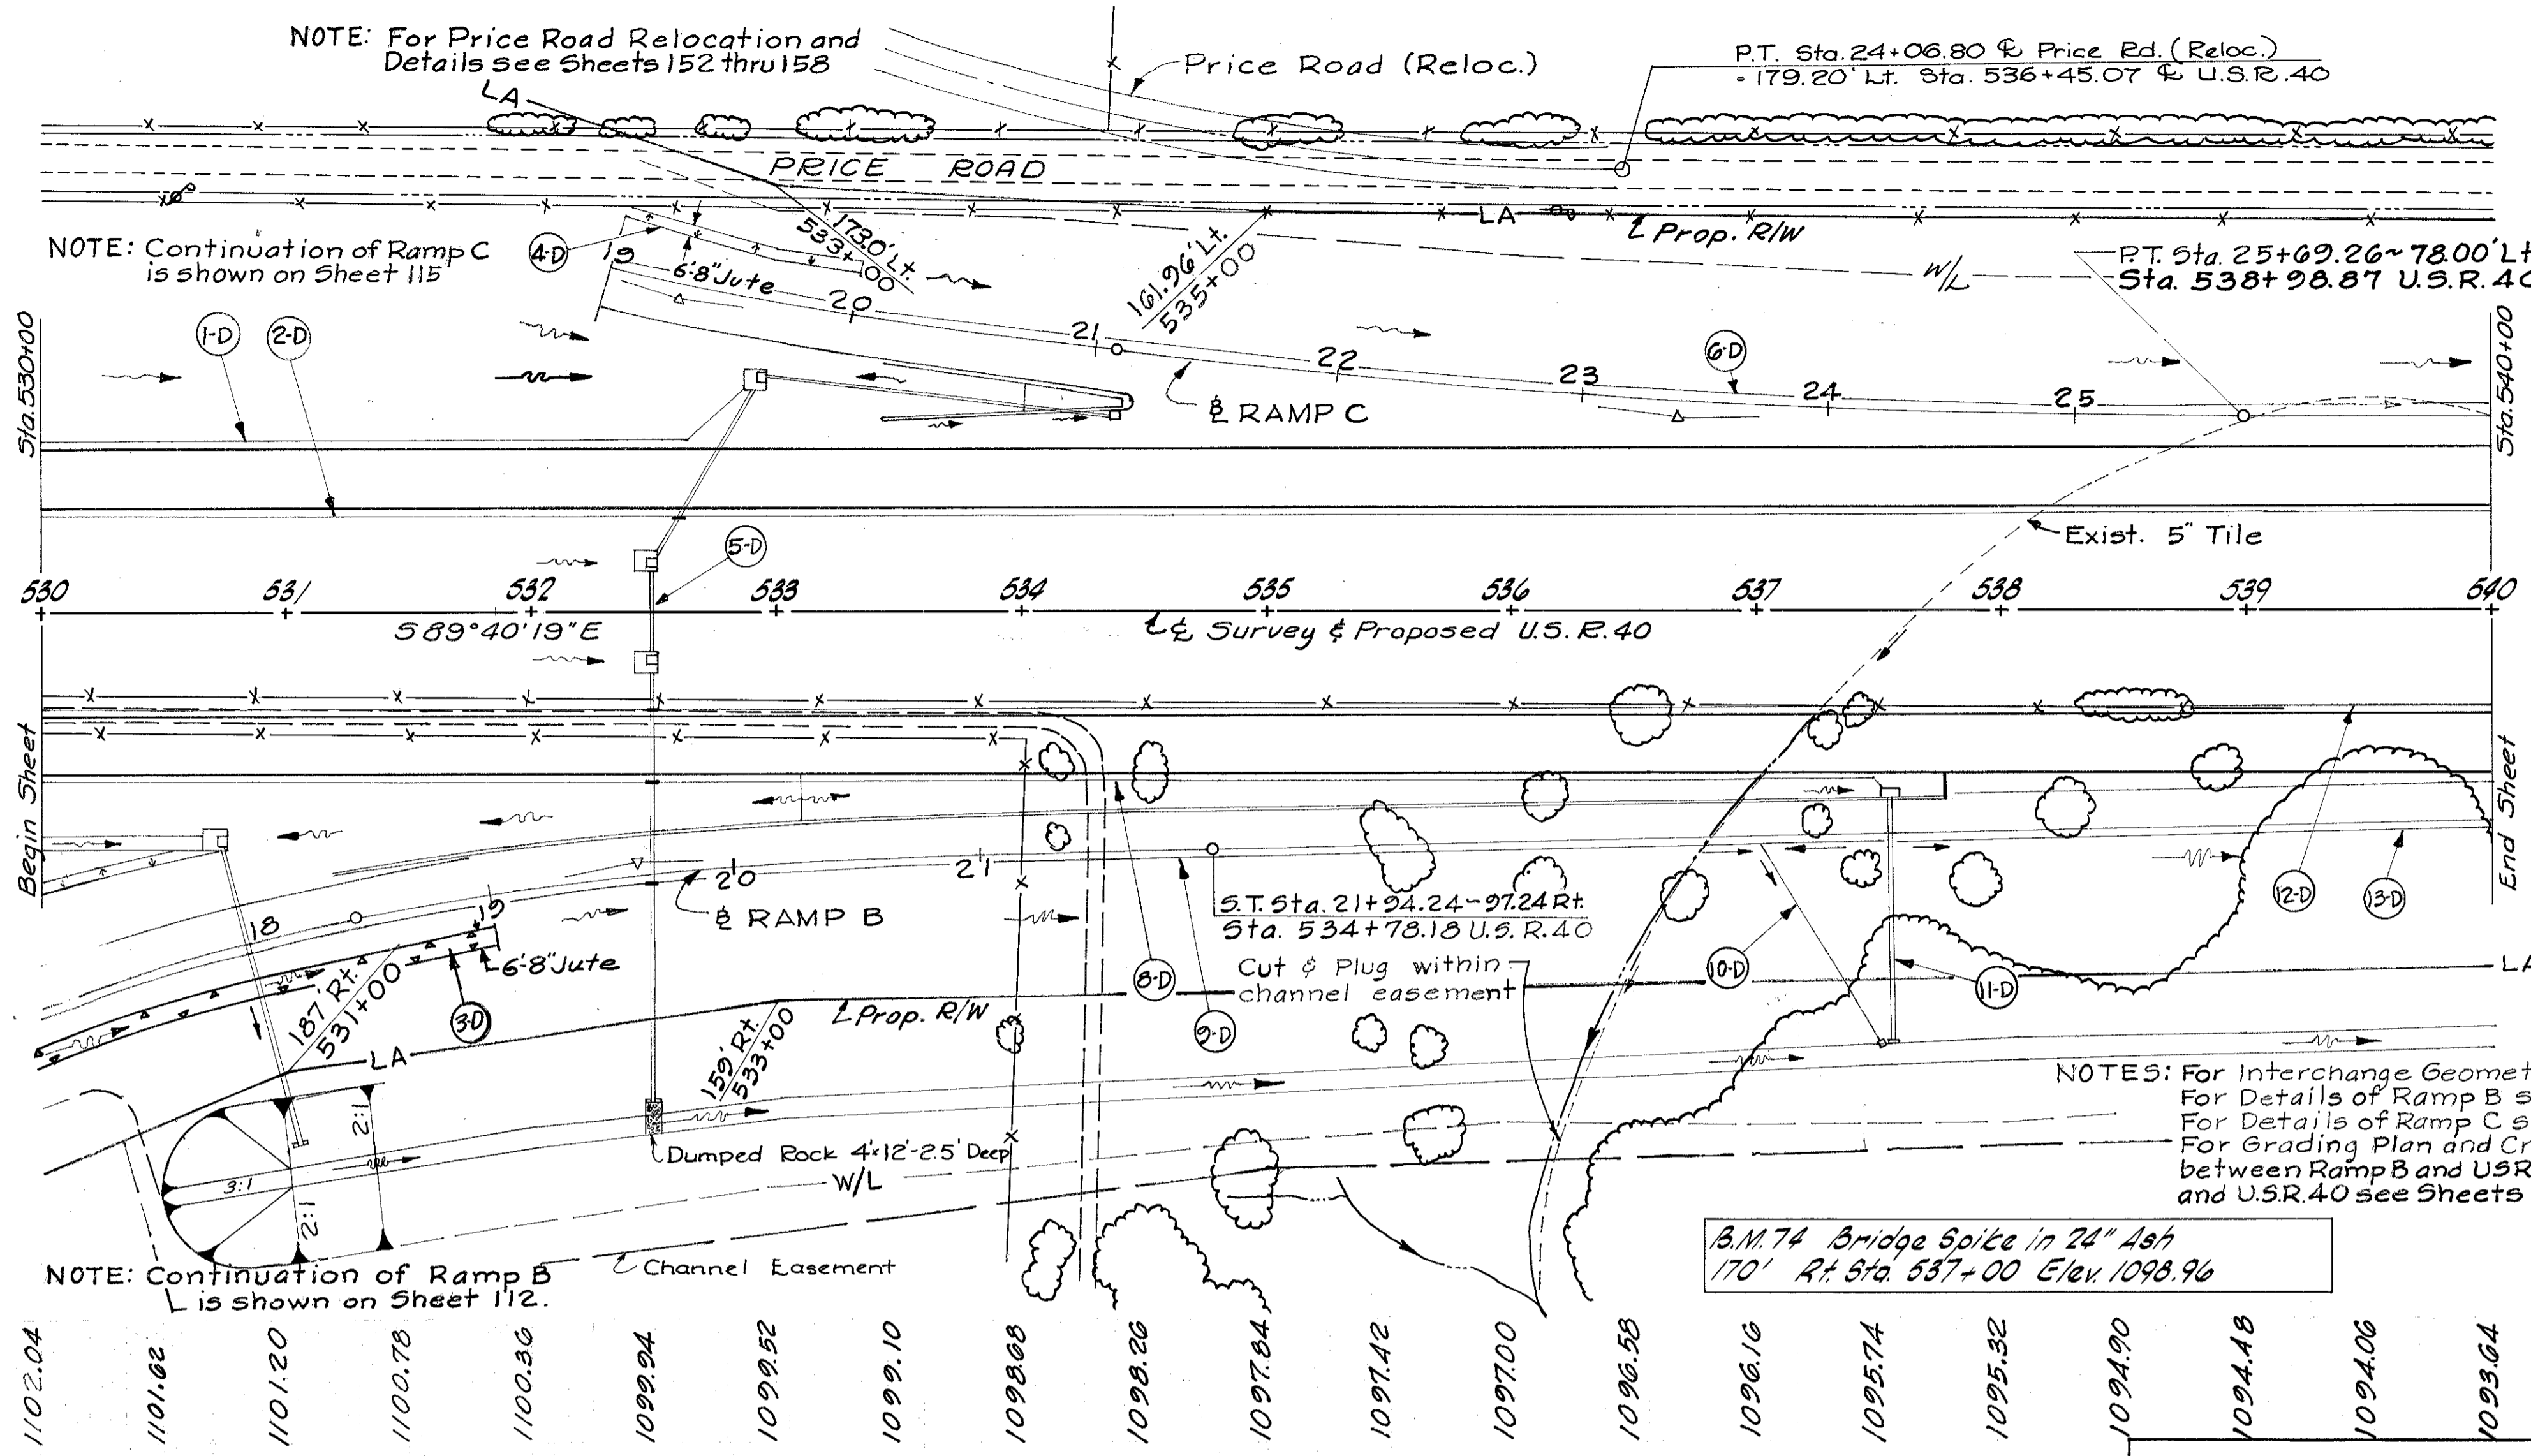 NOTE: For Price Road Relocation and
Details see Sheets 152 thru 158
LA
Price Road (Reloc.)
P.T. Sta. 24+06.80 ℄ Price Rd. (Reloc.)
= 179.20' Lt. Sta. 536+45.07 ℄ U.S.R. 40
PRICE ROAD
LA
Prop. R/W
NOTE: Continuation of Ramp C
is shown on Sheet 115
4-D
19
6'-8" Jute
173.0' Lt.
533+00
20
161.96' Lt.
535+00
W/L
P.T. Sta. 25+69.26~78.00' Lt
Sta. 538+98.87 U.S.R. 40
Sta. 530+00
1-D
2-D
21
22
23
6-D
24
25
Sta. 540+00
℄ RAMP C
5-D
Exist. 5" Tile
530 531 532 533 534 535 536 537 538 539 540
S 89°40'19" E
℄ Survey & Proposed U.S.R. 40
Begin Sheet
End Sheet
18
19
20
21
℄ RAMP B
6'-8" Jute
3-D
187' Rt.
531+00
S.T. Sta. 21+94.24~97.24 Rt.
Sta. 534+78.18 U.S.R. 40
Cut & Plug within
channel easement
8-D
9-D
10-D
11-D
12-D
13-D
LA
LA
Prop. R/W
159' Rt.
533+00
2:1
3:1
2:1
Dumped Rock 4'x12'-2.5' Deep
W/L
Channel Easement
NOTE: Continuation of Ramp B
is shown on Sheet 112.
NOTES: For Interchange Geomet
For Details of Ramp B s
For Details of Ramp C s
For Grading Plan and Cr
between Ramp B and USR
and U.S.R. 40 see Sheets
B.M. 74 Bridge Spike in 24" Ash
170' Rt. Sta. 537+00 Elev. 1098.96
1102.04 1101.62 1101.20 1100.78 1100.36 1099.94 1099.52 1099.10 1098.68 1098.26 1097.84 1097.42 1097.00 1096.58 1096.16 1095.74 1095.32 1094.90 1094.48 1094.06 1093.64